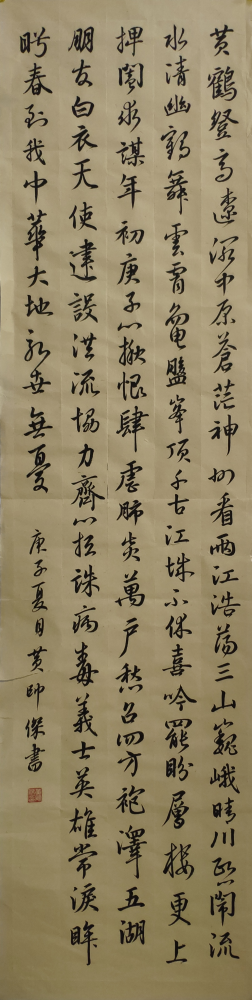 黄鹤登高遠瀏中原蒼茫神州看兩江浩蕩三山巍峨晴川熙閙流
水清幽鹤舞雲霄龜盤峯頂千古江城不休喜吟罷盼層楼更上
捭闔永謀年初庚子心掀恨肆虐肺炎萬户愁召四方袍澤五湖
朋友白衣天使建設洪流協力齊心拒誅病毒義士英雄常淚眸
盼春到我中華大地永世無憂
庚子夏日黄帥傑書